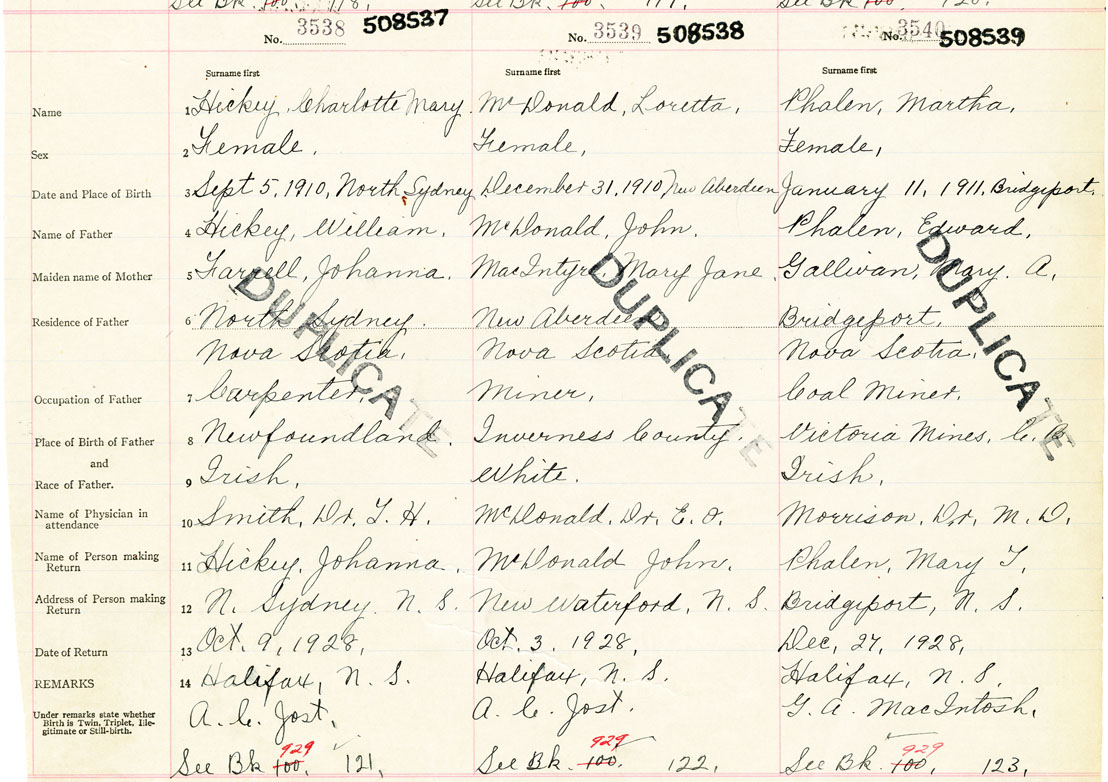 See Bk. 100. 118, See Bk. 100. 119, See Bk. 100. 120,
No. 3538 508537 No. 3539 508538 No. 3540 508539
Surname first Surname first Surname first
Name 1 Hickey, Charlotte Mary. McDonald, Loretta, Phalen, Martha,
Sex 2 Female. Female, Female,
Date and Place of Birth 3 Sept 5, 1910, North Sydney, December 31, 1910, New Aberdeen January 11, 1911, Bridgeport.
Name of Father 4 Hickey, William. McDonald, John. Phalen, Edward,
Maiden name of Mother 5 Farrell, Johanna. MacIntyre, Mary Jane. Gallivan, Mary. A,
DUPLICATE DUPLICATE DUPLICATE
Residence of Father 6 North Sydney. New Aberdeen Bridgeport.
Nova Scotia. Nova Scotia Nova Scotia.
Occupation of Father 7 Carpenter, Miner, Coal Miner.
Place of Birth of Father 8 Newfoundland. Inverness County. Victoria Mines, C. B
and
Race of Father. 9 Irish, White. Irish,
Name of Physician in attendance 10 Smith, Dr. T. H. McDonald, Dr. E. O. Morrison, Dr, M. D,
Name of Person making Return 11 Hickey, Johanna. McDonald John. Phalen, Mary T,
Address of Person making Return 12 N. Sydney. N. S. New Waterford, N. S. Bridgeport, N. S.
Date of Return 13 Oct. 9, 1928, Oct. 3, 1928, Dec, 27, 1928,
REMARKS 14 Halifax, N. S. Halifax, N. S. Halifax, N. S.
Under remarks state whether Birth is Twin, Triplet, Ille-
gitimate or Still-birth. A. C. Jost. A. C. Jost. G. A. MacIntosh,
929 929 929
See Bk 100. 121, See Bk. 100. 122, See Bk. 100. 123,